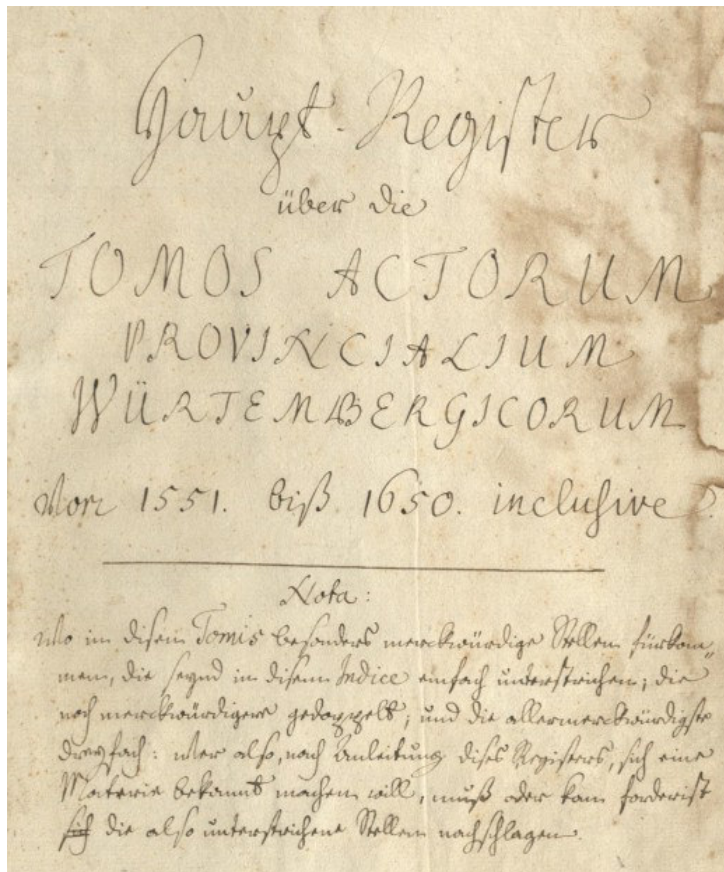 Haupt-Register
über die
TOMOS ACTORUM
PROVINCIALIUM
WÜRTEMBERGICORUM
Von 1551. biß 1650. inclusive.
Nota:
Wo in disen Tomis besonders merckwürdige Stellen fürkom„
men, die seynd in disem Indice einfach unterstrichen; die
noch merckwürdigere gedoppelt; und die allermerckwürdigste
dreyfach: wer also, nach Anleitung dises Registers, sich eine
Materie bekannt machen will, muß oder kan forderist
sich die also unterstrichene Stellen nachschlagen.